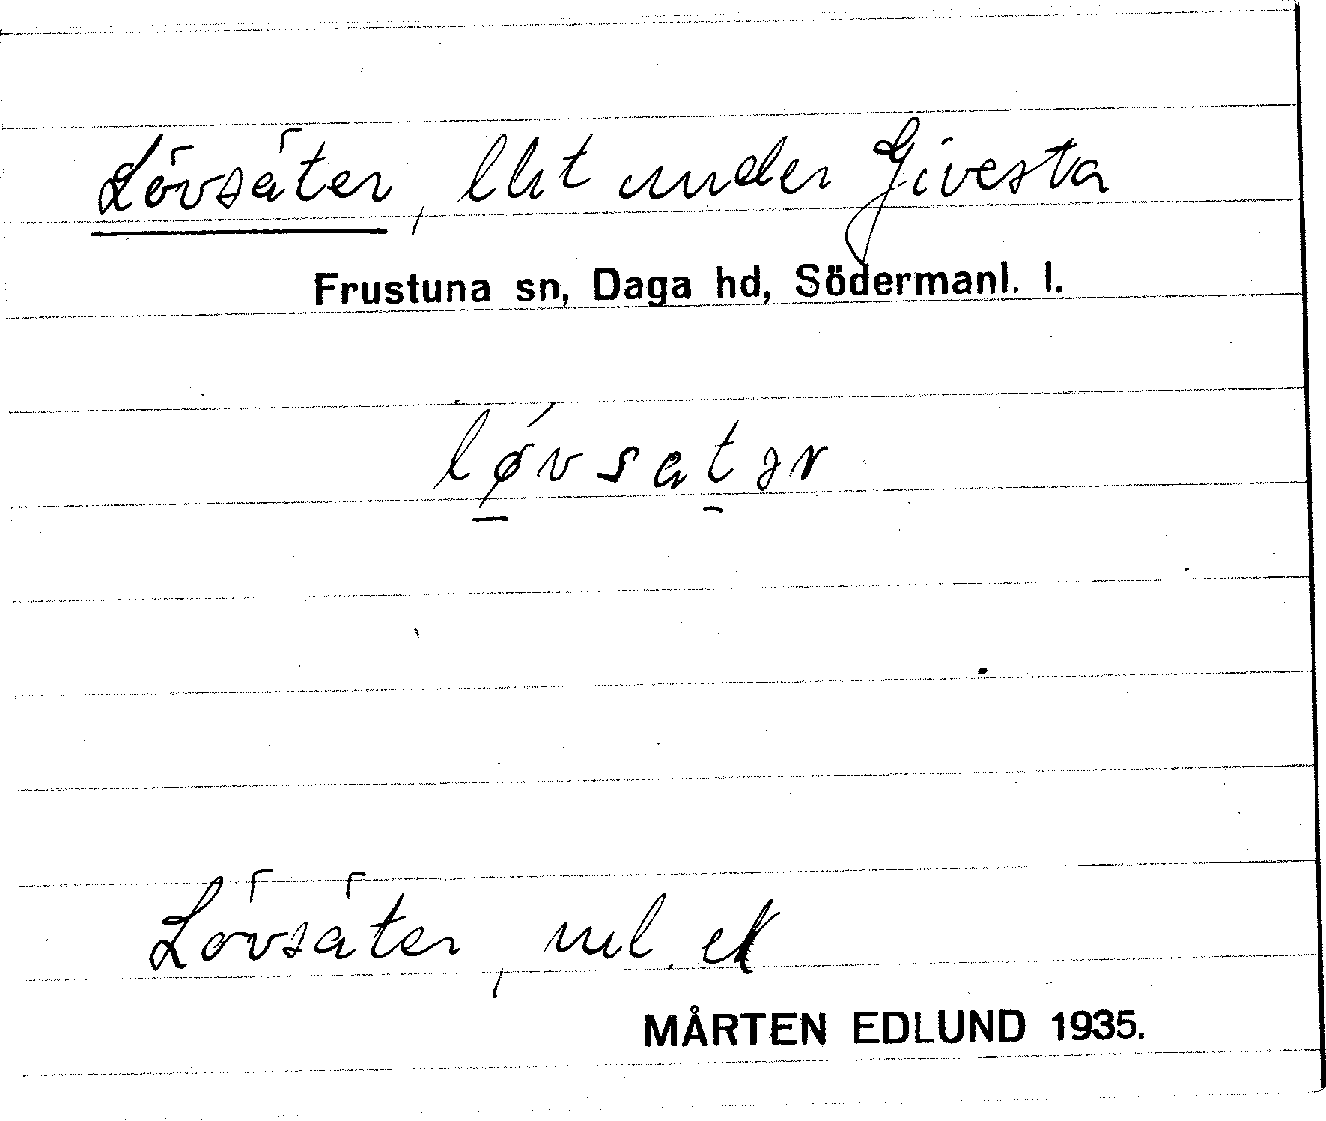 Lövsäter, lht under Givesta
Frustuna sn, Daga hd, Södermanl. l.
løvsatər
Lövsäter, mel. ek
MÅRTEN EDLUND 1935.